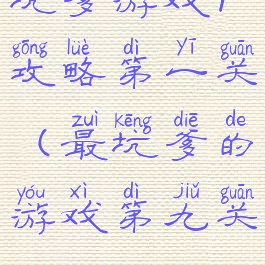 坑爹游戏1
gōng lüè dì yī guān
攻略第一关
zuì kēng diē de
(最坑爹的
yóu xì dì jiǔ guān
游戏第九关